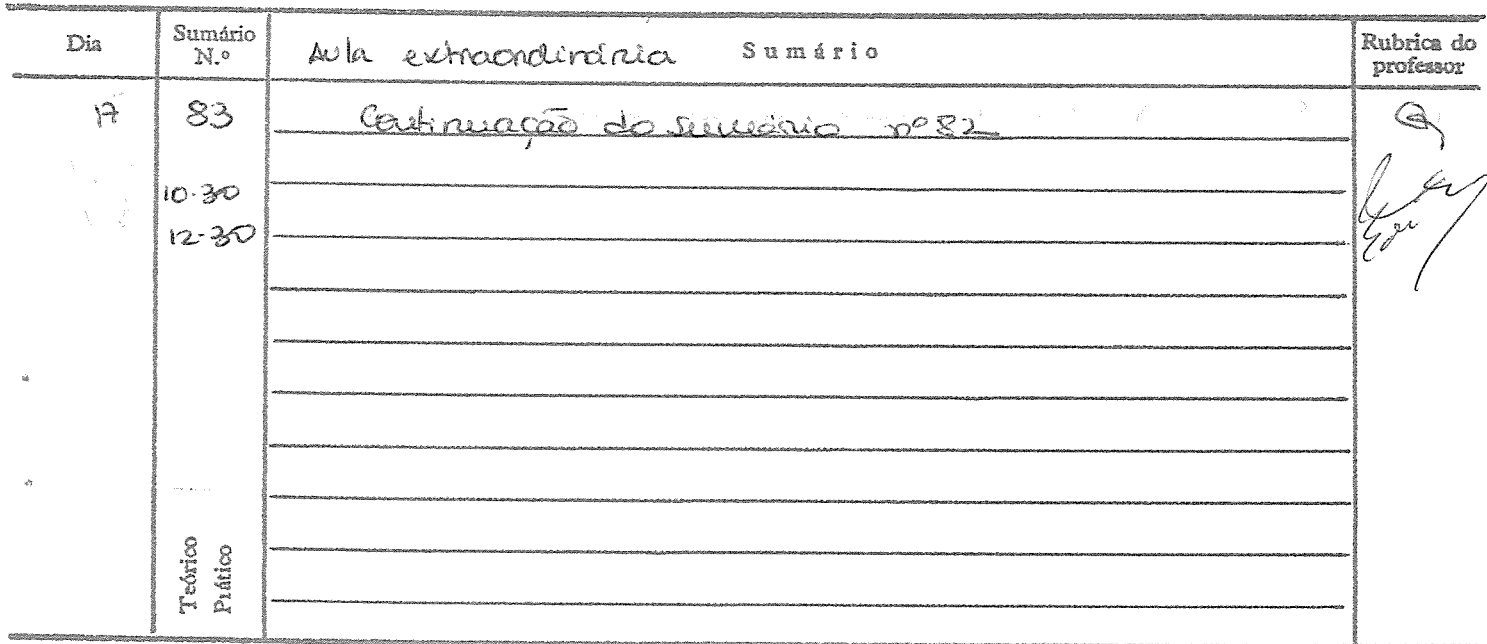 Dia
Sumário
N.º
Aula extraordinária Sumário
Rubrica do
professor
17
83
Continuação do sumário nº 82
10.30
12-30
Teórico
Prático